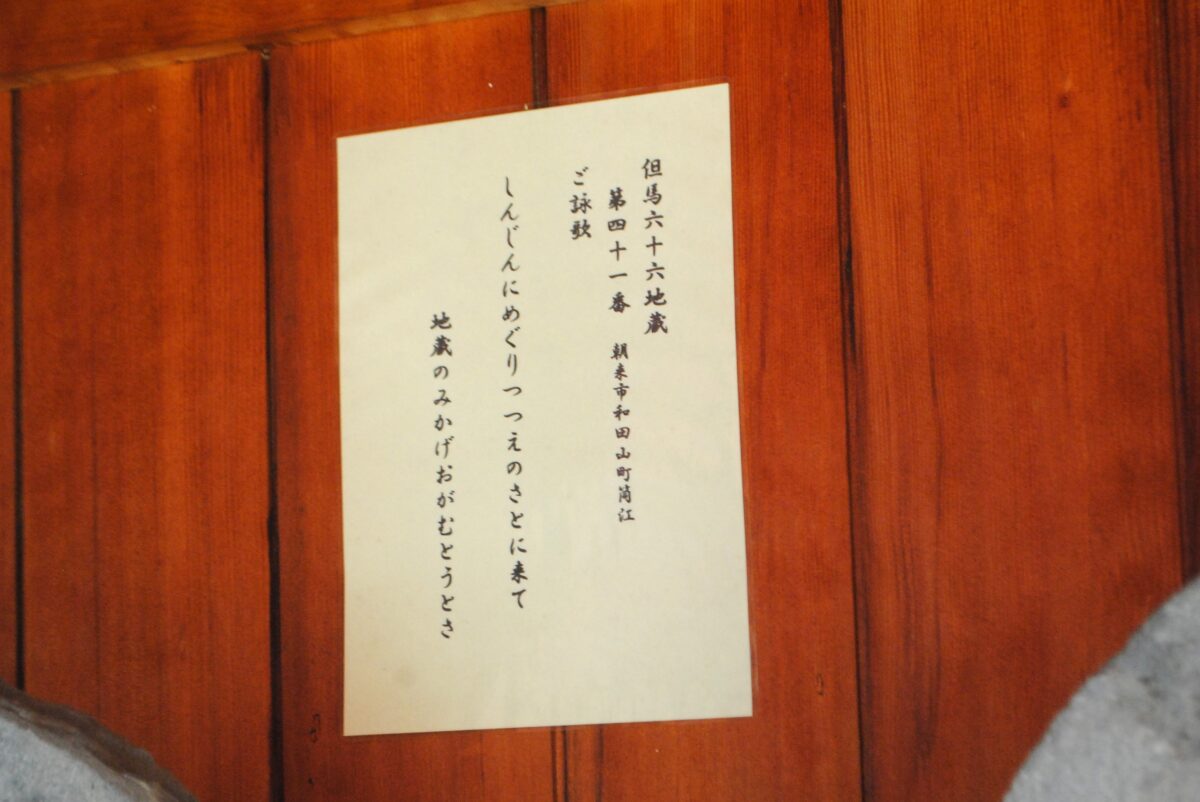 但馬六十六地蔵
第四十一番 朝来市和田山町筒江
ご詠歌
しんじんにめぐりつつえのさとに来て
地蔵のみかげおがむとうとさ